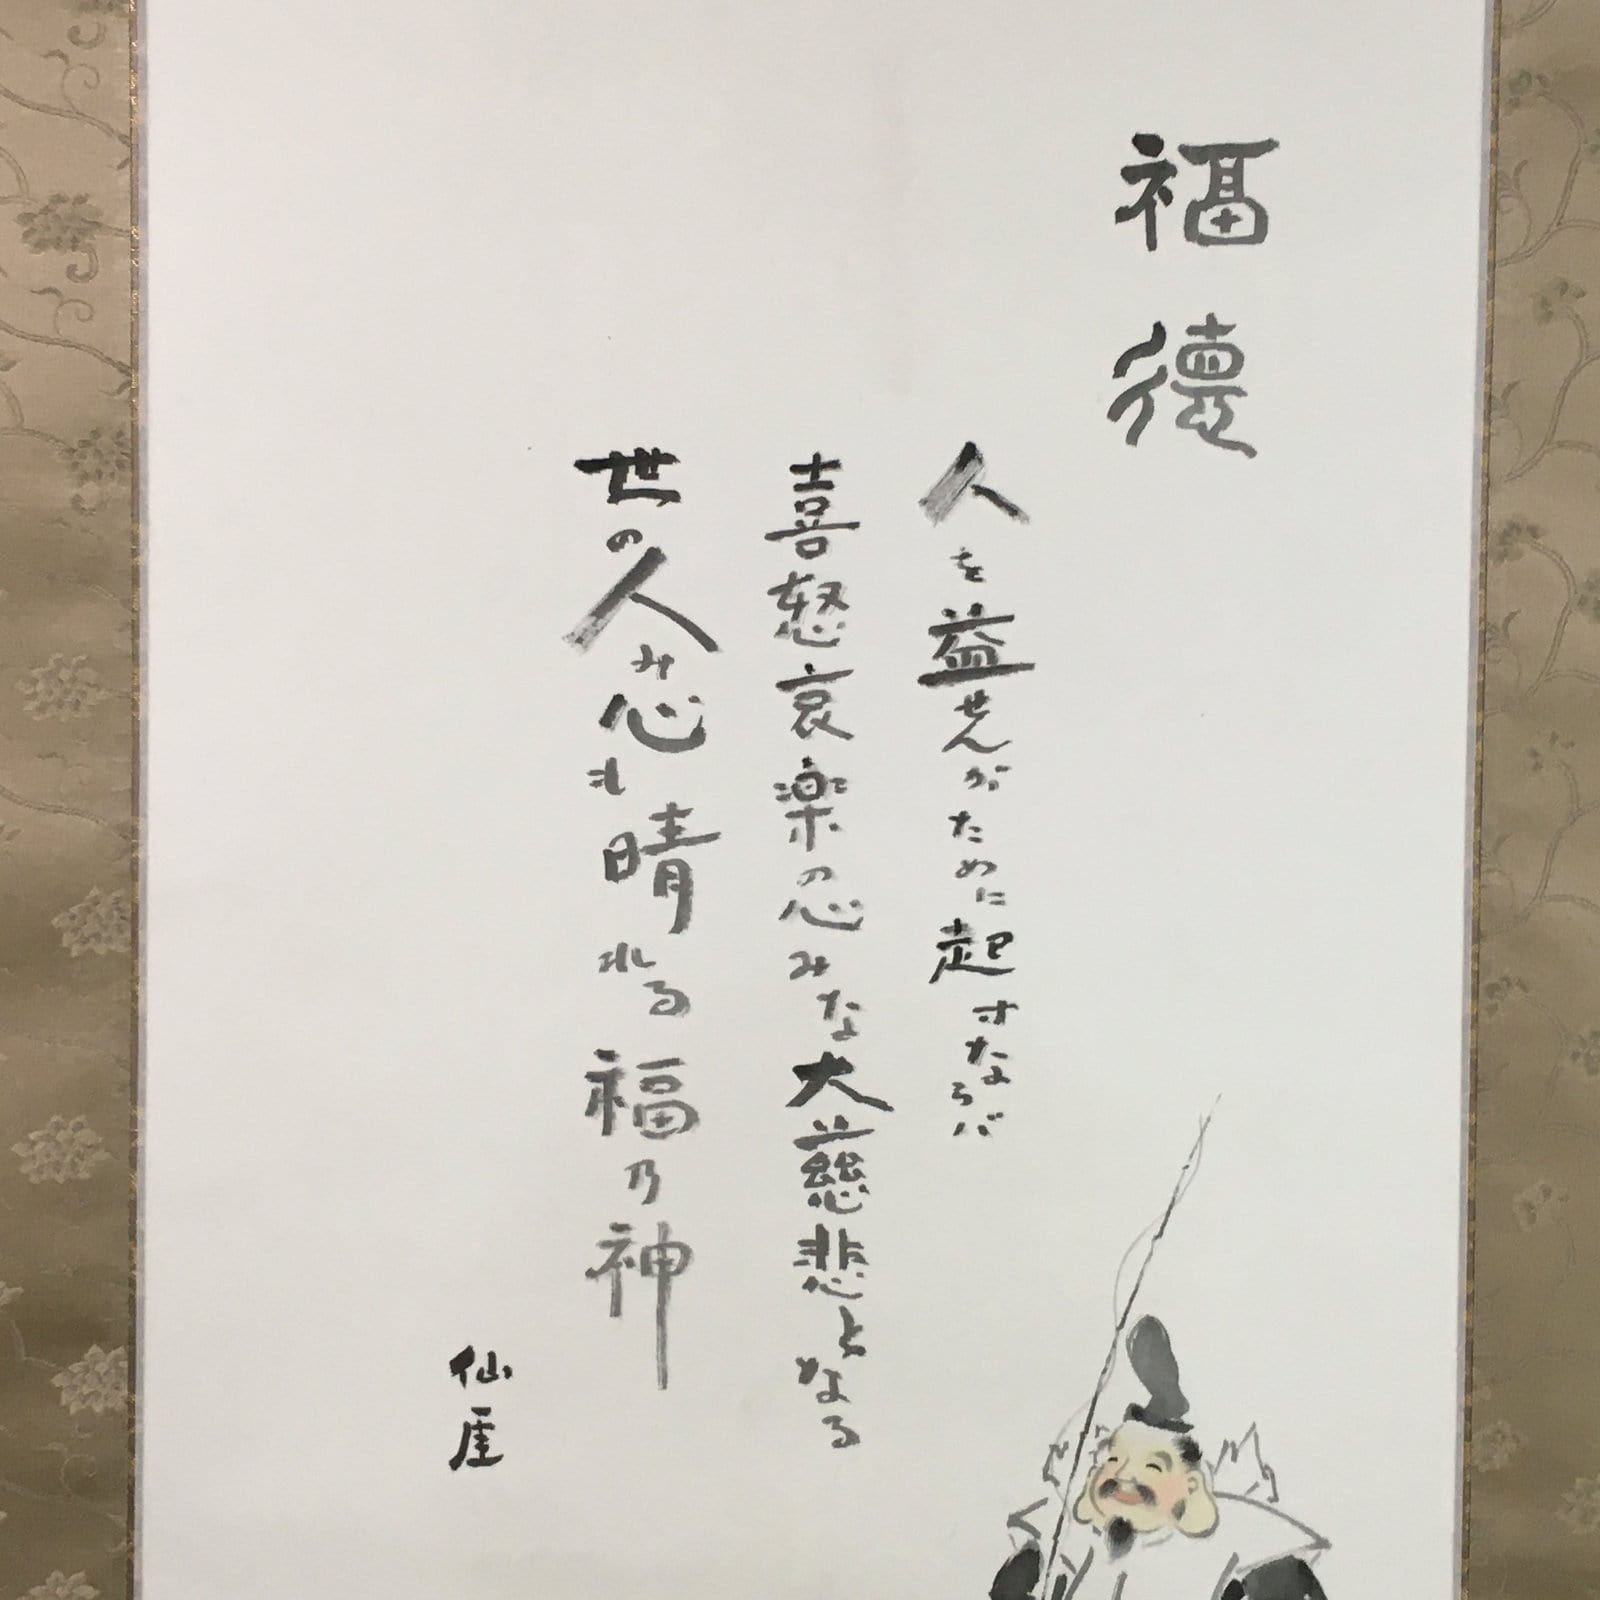 福徳
人を益せんがために起すならバ
喜怒哀楽の心みな大慈悲となる
世の人み心も晴れる福乃神
仙崖